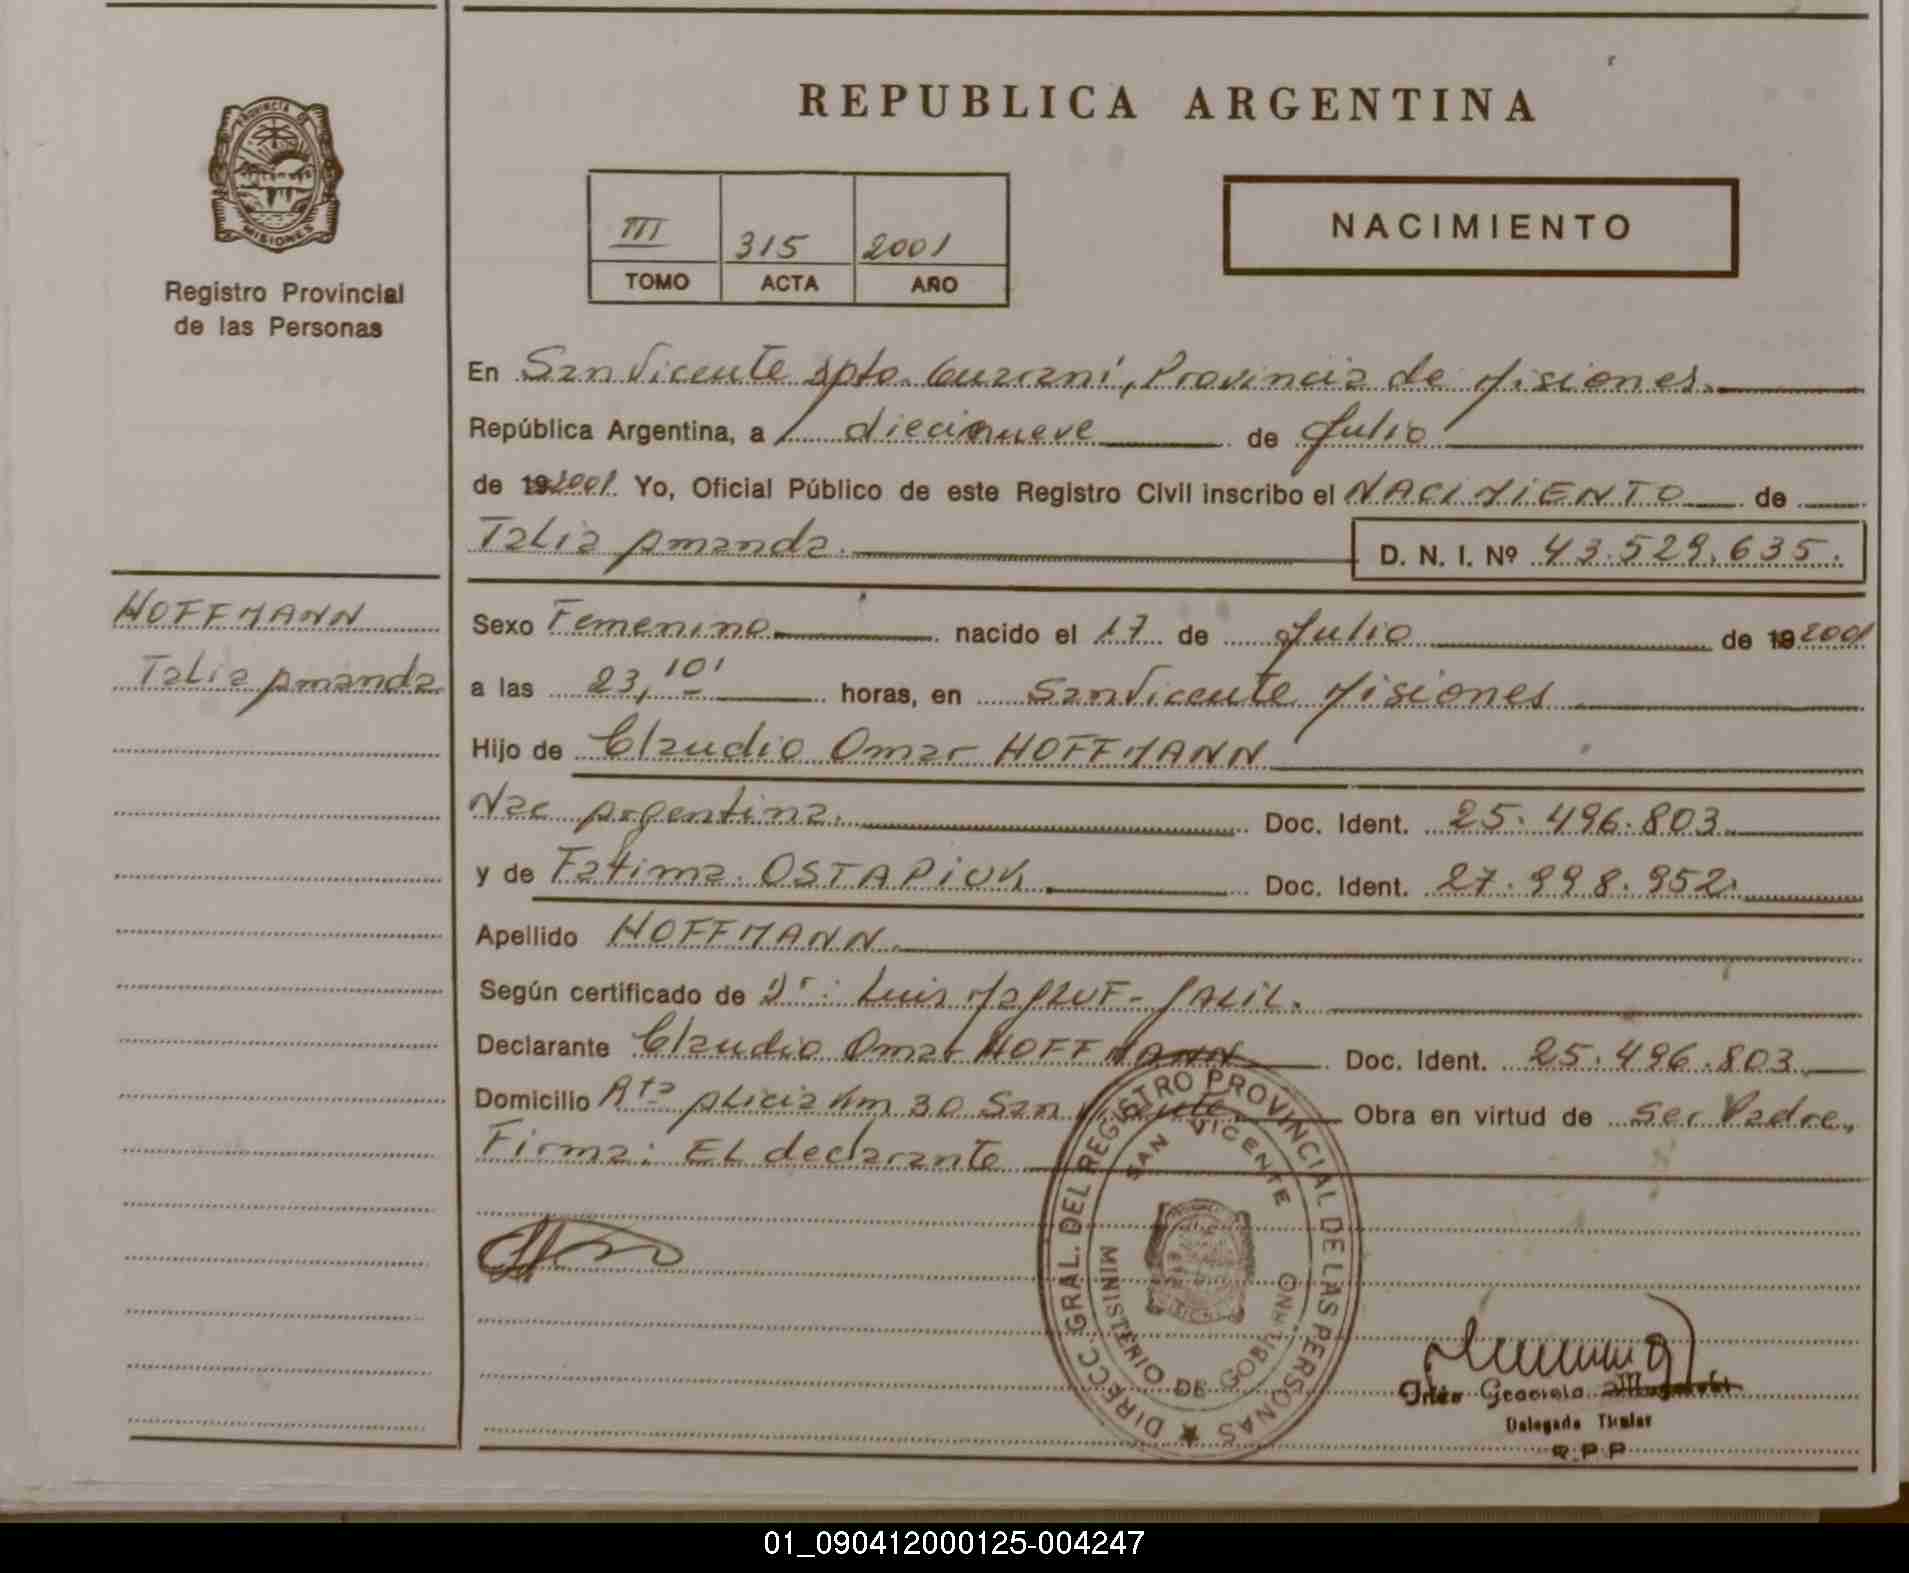 PROVINCIA D
MISIONES
Registro Provincial
de las Personas
HOFFMANN
Talia Amanda
REPUBLICA ARGENTINA
III 315 2001
TOMO ACTA AÑO
NACIMIENTO
En San Vicente Dpto. Guaraní, Provincia de Misiones.
República Argentina, a diecinueve de Julio
de 192001. Yo, Oficial Público de este Registro Civil inscribo el NACIMIENTO de
Talia Amanda. D. N. I. Nº 43.529.635.
Sexo Femenino nacido el 17 de Julio de 192001
a las 23,10' horas, en San Vicente Misiones
Hijo de Claudio Omar HOFFMANN
Nac Argentina. Doc. Ident. 25.496.803
y de Fatima OSTAPIUK Doc. Ident. 27.998.952.
Apellido HOFFMANN
Según certificado de Dr: Luis JALIL.
Declarante Claudio Omar HOFFMANN Doc. Ident. 25.496.803
Domicilio Rta Alicia Km 30 San Vicente Obra en virtud de ser Padre,
Firma: El declarante
DIRECC. GRAL. DEL REGISTRO PROVINCIAL DE LAS PERSONAS
SAN VICENTE
MINISTERIO DE GOBIERNO
Graciela
Delegada Titular
R.P.P
01_090412000125-004247